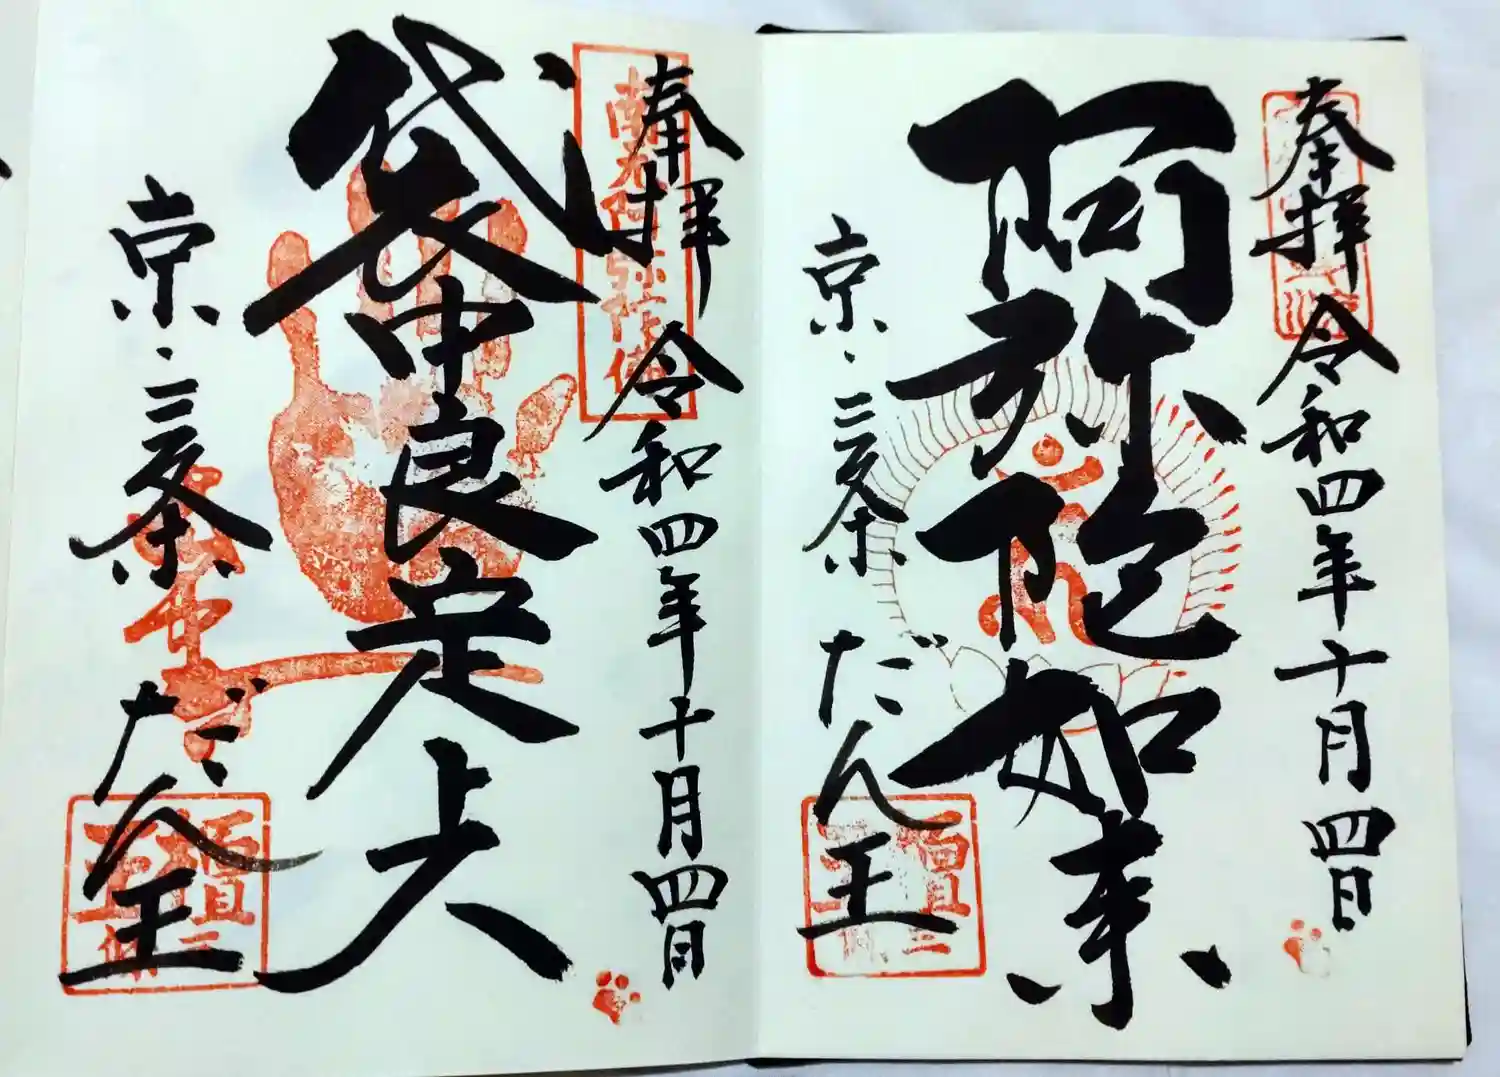 奉拝 令和四年十月四日
阿弥陀如来
京・三条 だん王
奉拝 令和四年十月四日
南無阿弥陀佛
袋中良定上人
京・三条 だん王